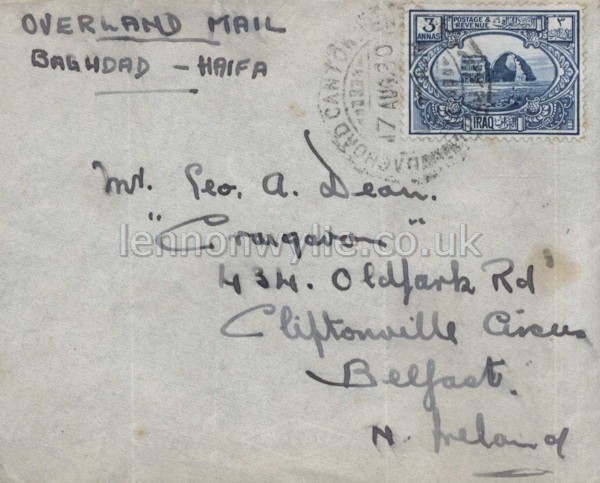 OVERLAND MAIL
BAGHDAD - HAIFA
3 ANNAS
POSTAGE & REVENUE
٣
IRAQ
BAGHDAD CANTON
17 AUG. 30
Mr. Geo. A. Dean.
"Craigavon"
lennonwylie.co.uk
434. Oldpark Rd
Cliftonville Circus
Belfast.
N. Ireland